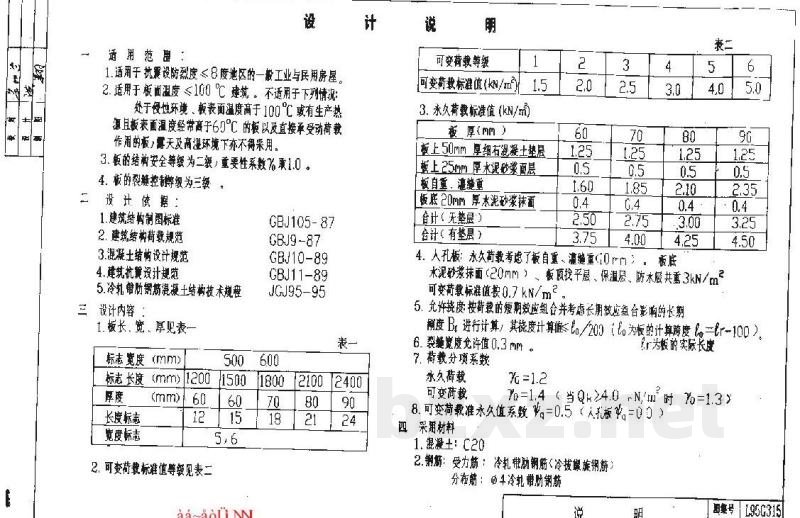 设 计 说 明
一 适用范围:
1.适用于抗震设防烈度≤8度地区的一般工业与民用房屋。
2.适用于板面温度≤100℃建筑。不适用于下列情况:
处于侵蚀环境、板表面温度高于100℃或有生产热
源且板表面温度经常高于60℃的板以及直接承受动荷载
作用的板,露天及高湿环境下亦不得采用。
3.板的结构安全等级为二级,重要性系数γ₀取1.0。
4.板的裂缝控制等级为三级。
二 设计依据:
1.建筑结构制图标准 GBJ105-87
2.建筑结构荷载规范 GBJ9-87
3.混凝土结构设计规范 GBJ10-89
4.建筑抗震设计规范 GBJ11-89
5.冷轧带肋钢筋混凝土结构技术规程 JGJ95-95
三 设计内容:
1.板长、宽、厚见表一
表一
标志宽度 (mm) 500 600
标志长度 (mm) 1200 1500 1800 2100 2400
厚度 (mm) 60 60 70 80 90
长度标志 12 15 18 21 24
宽度标志 5,6
2.可变荷载标准值等级见表二
表二
可变荷载等级 1 2 3 4 5 6
可变荷载标准值(kN/m²) 1.5 2.0 2.5 3.0 4.0 5.0
3.永久荷载标准值(kN/m²)
板 厚(mm) 60 70 80 90
板上50mm厚细石混凝土垫层 1.25 1.25 1.25 1.25
板上25mm厚水泥砂浆面层 0.5 0.5 0.5 0.5
板自重、灌缝重 1.60 1.85 2.10 2.35
板底20mm厚水泥砂浆抹面 0.4 0.4 0.4 0.4
合计(无垫层) 2.50 2.75 3.00 3.25
合计(有垫层) 3.75 4.00 4.25 4.50
4.人孔板:永久荷载考虑了板自重、灌缝重 板底
水泥砂浆抹面(20mm)、板顶找平层、保温层、防水层共重3kN/m²
可变荷载标准值按0.7kN/m²。
5.允许挠度:按荷载的短期效应组合并考虑长期效应组合影响的长期
刚度Bℓ进行计算,其挠度计算值≤ℓ₀/200(ℓ₀为板的计算跨度ℓ₀=ℓr-100)
ℓr为板的实际长度
6.裂缝宽度允许值0.3mm。
7.荷载分项系数
永久荷载 γG=1.2
可变荷载 γQ=1.4(当Qk≥4.0kN/m²时 γQ=1.3)
8.可变荷载准永久值系数ψq=0.5(人孔板ψq=0.0)
四 采用材料
1.混凝土:C20
2.钢筋:受力筋:冷轧带肋钢筋(冷拔螺旋钢筋)
分布筋:φ4冷轧带肋钢筋
说 明 图集号 L95G315